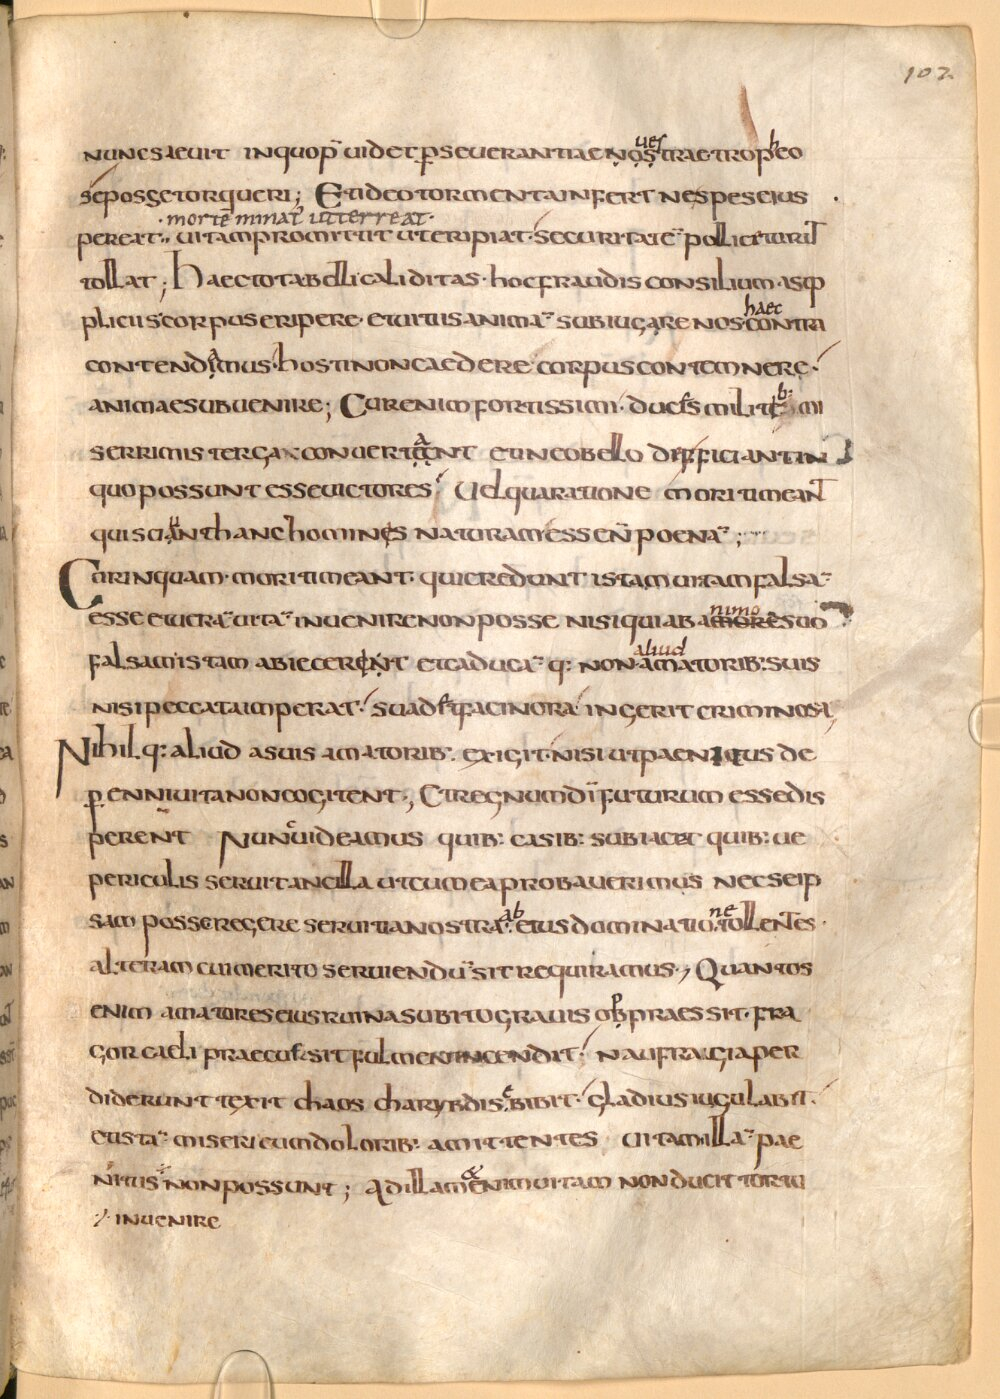 102
nunc saeuit in quop̄ uidet p̄seuerantiae nostrae trop heo
ues
se posse torqueri; Et ideo tormenta infert ne spes eius
· mortē minat̄ ut terreat ·
pereat ·, uitam promittit ut eripiat · securitatē pollicetur ut
tollat ; Haec tota belli caliditas · hoc fraudis consilium · us̄
pliciis corpus eripere · et uitiis animā subiugare nos · contra
haec
contendamus · hosti non caedere corpus contemnere ·
animae subuenire ; Cur enim fortissimi · ducis militib: mi
serrimis terga conuertant et in eo bello difficiantin
quo possunt esse uictores · Uel qua ratione mori timeant
qui sciunt hanc hominis naturam esse n̄ poenā ;
Cur inquam · mori timeant · qui credunt istam uitam falsā
esse et uerā uitā inuenire non posse nisi qui ab amore suo
nimo
falsam istam abiecerint et caducā q: non amatorib: suis
aliud
nisi peccata imperat · suadet facinora · ingerit criminosa,
Nihil q: aliud a suis amatorib: exigit · nisi ut paenitus de
p̄enni uita non cogitent ·, Et regnum dī futurum esse dis
perent Nunc uideamus quib: casib: subiacet quib: ue
periculis seruit ancilla ut cum ea probauerimus nec se ip
sam posse regere seruitia nostrā · ab eius dominatione · tollentes ·
alteram cui merito seruiendū sit requiramus ·, Quantos
enim amatores eius ruina subito grauis op praessit · fra
gor caeli praecussit fulmen incendit · naufragia per
diderunt texit chaos charybdis · bibit · gladius iugulabit ·
et istā miseri cum dolorib: amittentes uitam illā pae
nitus non possunt ; Ad illam enim uitam non ducit tortu
⁒ inuenire